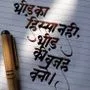 भीड़ का
हिस्सा नही,
भीड़
की वजह
बनो।।